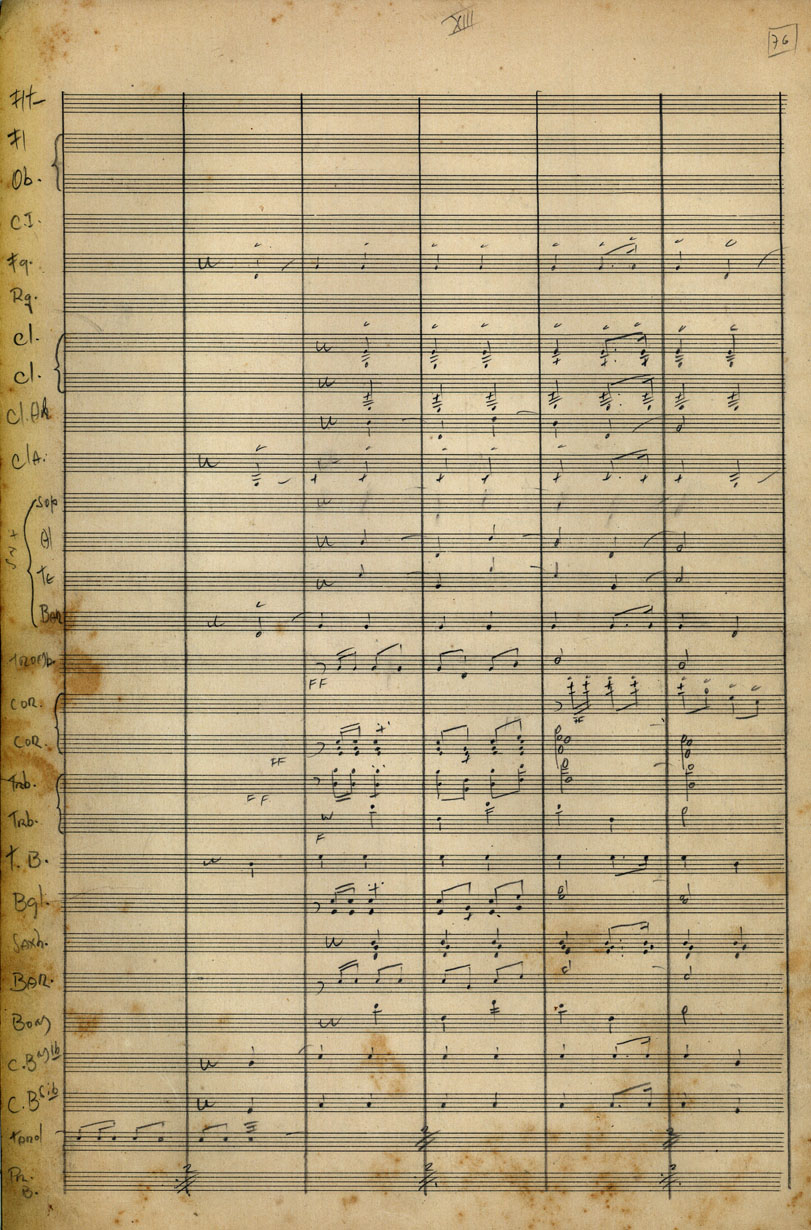 XIII
76
Flt
Fl
Ob.
CI.
Fg.
Rq.
Cl.
Cl.
Cl.Alt
ClA.
Sop
Al
Te
Bar
Sax
Tromb.
FF
Cor.
FF
Cor.
FF
Trb.
FF
Trb.
F
T.B.
Bgl.
Saxh.
Bar.
Bom
C.B Mib
C.B Sib
2
2
2
2
2